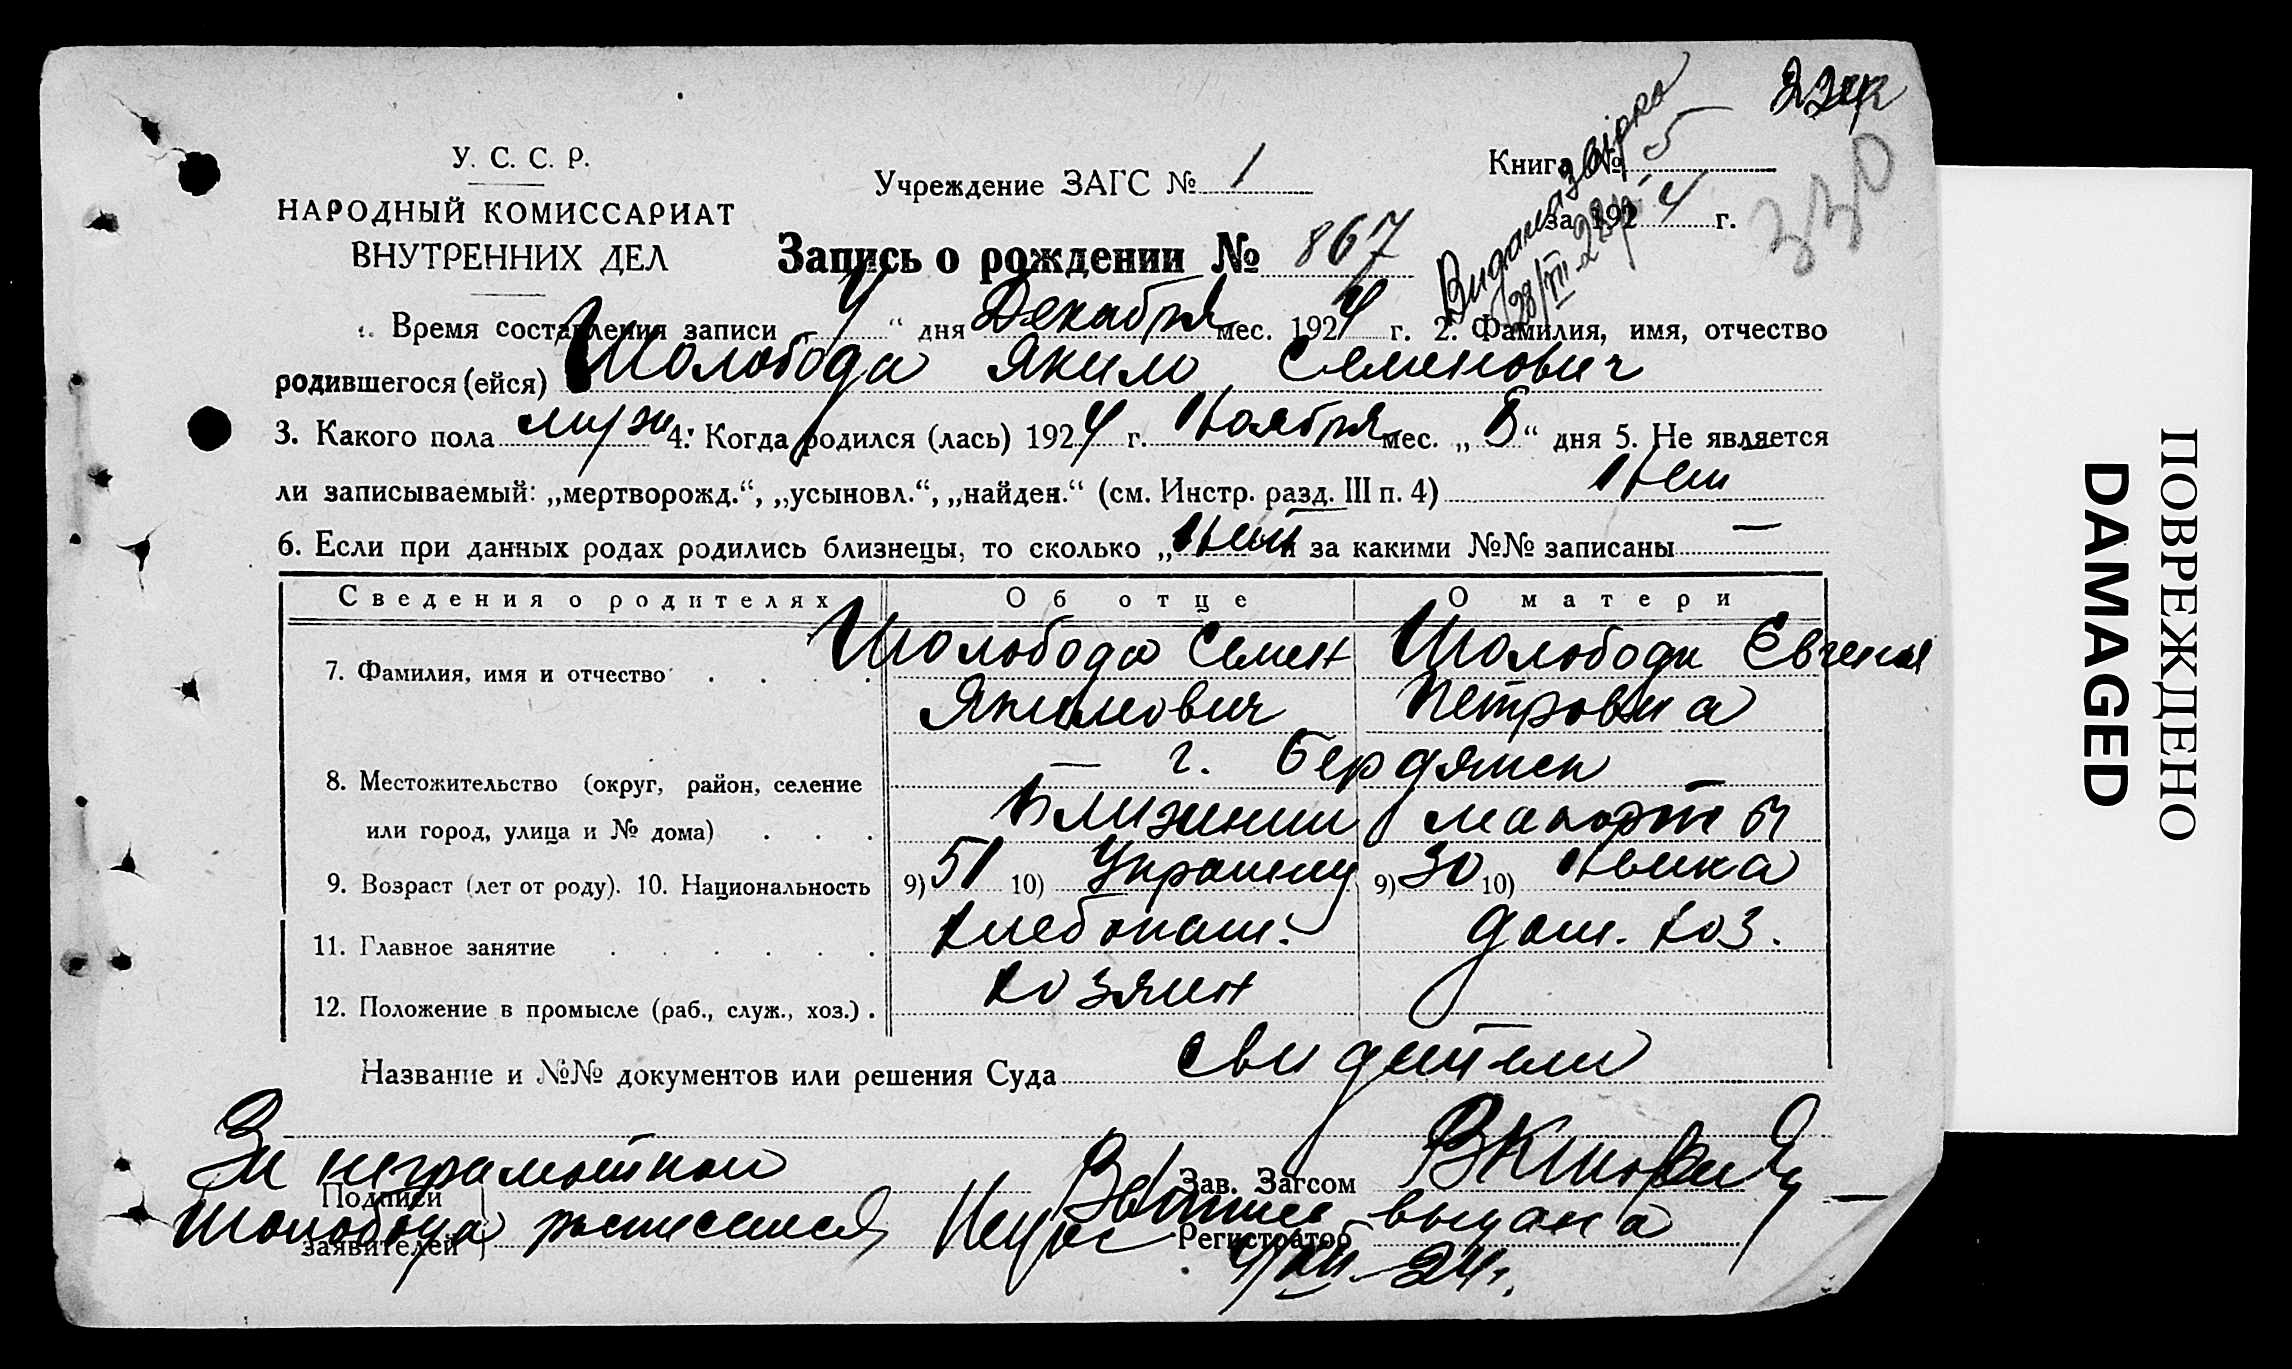 330
У. С. С. Р.
НАРОДНЫЙ КОМИССАРИАТ
ВНУТРЕННИХ ДЕЛ
Учреждение ЗАГС № 1
Книга № 5
за 1924 г.
Запись о рождении № 867
1. Время составления записи „4“ дня Декабря мес. 1924 г. 2. Фамилия, имя, отчество
родившегося (ейся) Шолобода Яким Семенович
3. Какого пола муж 4. Когда родился (лась) 1924 г. Ноября мес. „8“ дня 5. Не является
ли записываемый: „мертворожд.“, „усыновл.“, „найден.“ (см. Инстр. разд. III п. 4) Нет
6. Если при данных родах родились близнецы, то сколько „нет“ и за какими №№ записаны —
Сведения о родителях Об отце О матери
7. Фамилия, имя и отчество Шолобода Семен Якимович Шолобода Евгения Петровна
8. Местожительство (округ, район, селение
или город, улица и № дома) г. Бердянск Ближнии
9. Возраст (лет от роду). 10. Национальность 9) 51 10) Украинц 9) 30 10) нвика
11. Главное занятие хлебопаш. дом. хоз.
12. Положение в промысле (раб., служ., хоз.) хозяин
Название и №№ документов или решения Суда свидители
За неграмотнои
Шолобода росписался
Подписи
заявителей
Зав. Загсом
Регистратор
выдана
4/XII-24г.
ПОВРЕЖДЕНО
DAMAGED